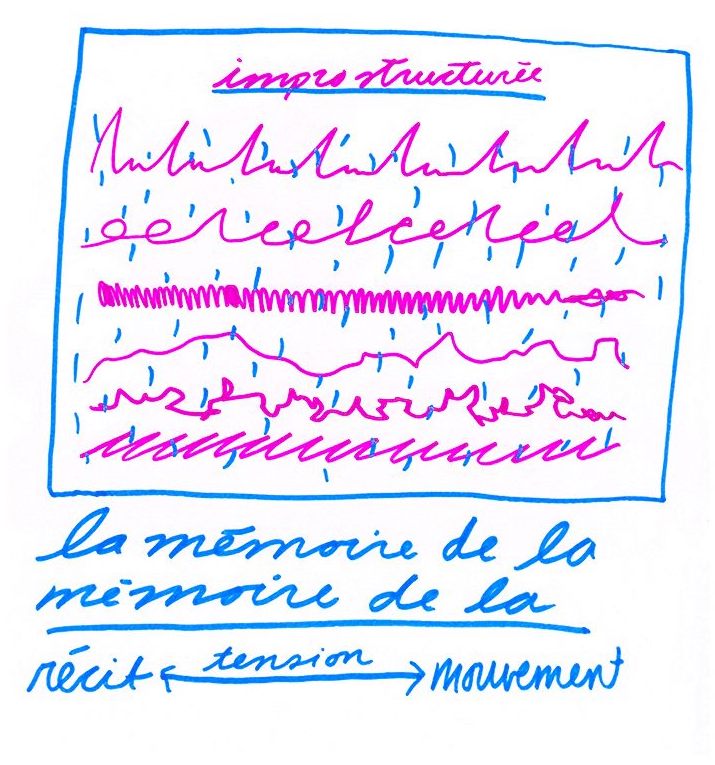 impro structurée
la mémoire de la
mémoire de la
récit tension mouvement